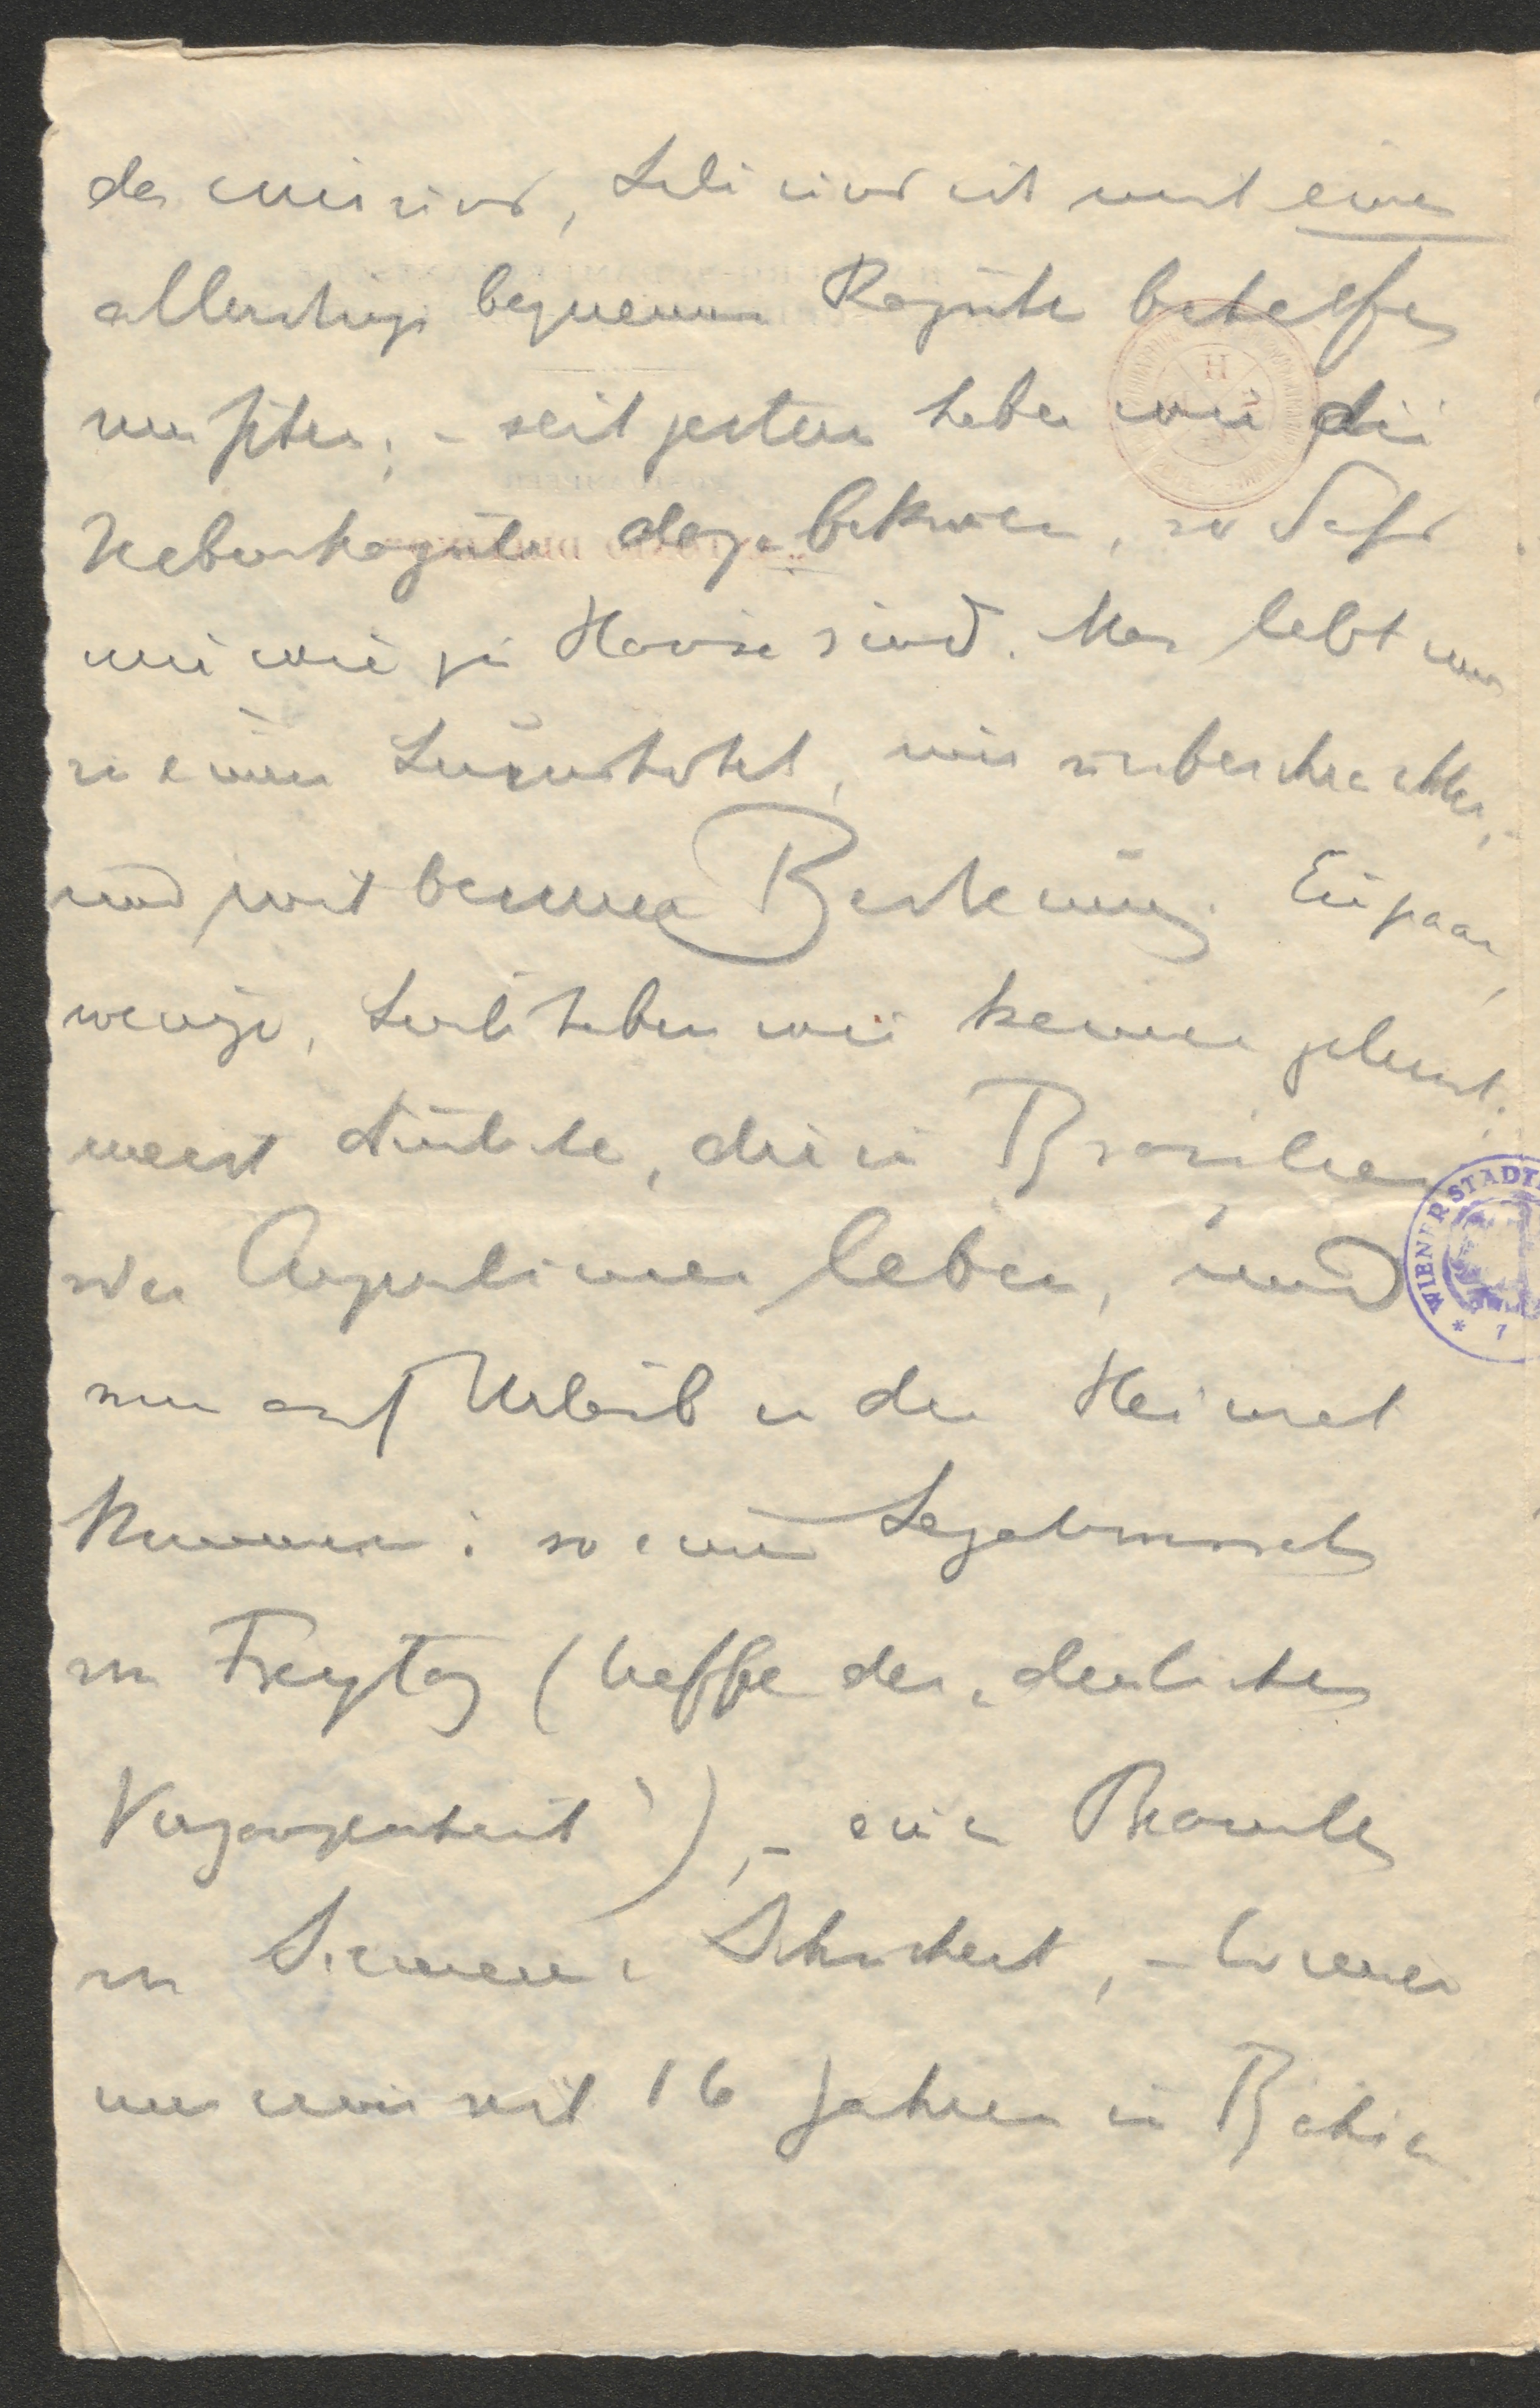 der wir sind, Lili und ich mit einer
allerdings bequemen Kajüte behelfen
mußten; – seit gestern haben wir die
Nebenkajüte dazu bekommen, so daß
wir wie zu Hause sind. Man lebt wie
in einem Luxushotel, nur
und mit besserer Bedienung. Ein paar,
wenige, Leute haben wir kennen gelernt;
meist Deutsche, die in Brasilien
oder Argentinien leben, und
nun auf Urlaub in die Heimat
kommen: so einen Legationsrath
von Freytag (Neffe der „deutschen
Vergangenheit“), – eine Beamten
von Siemens Schuckert, –
nun seit 16 Jahren in Bahia
WIENER STADT
* 7